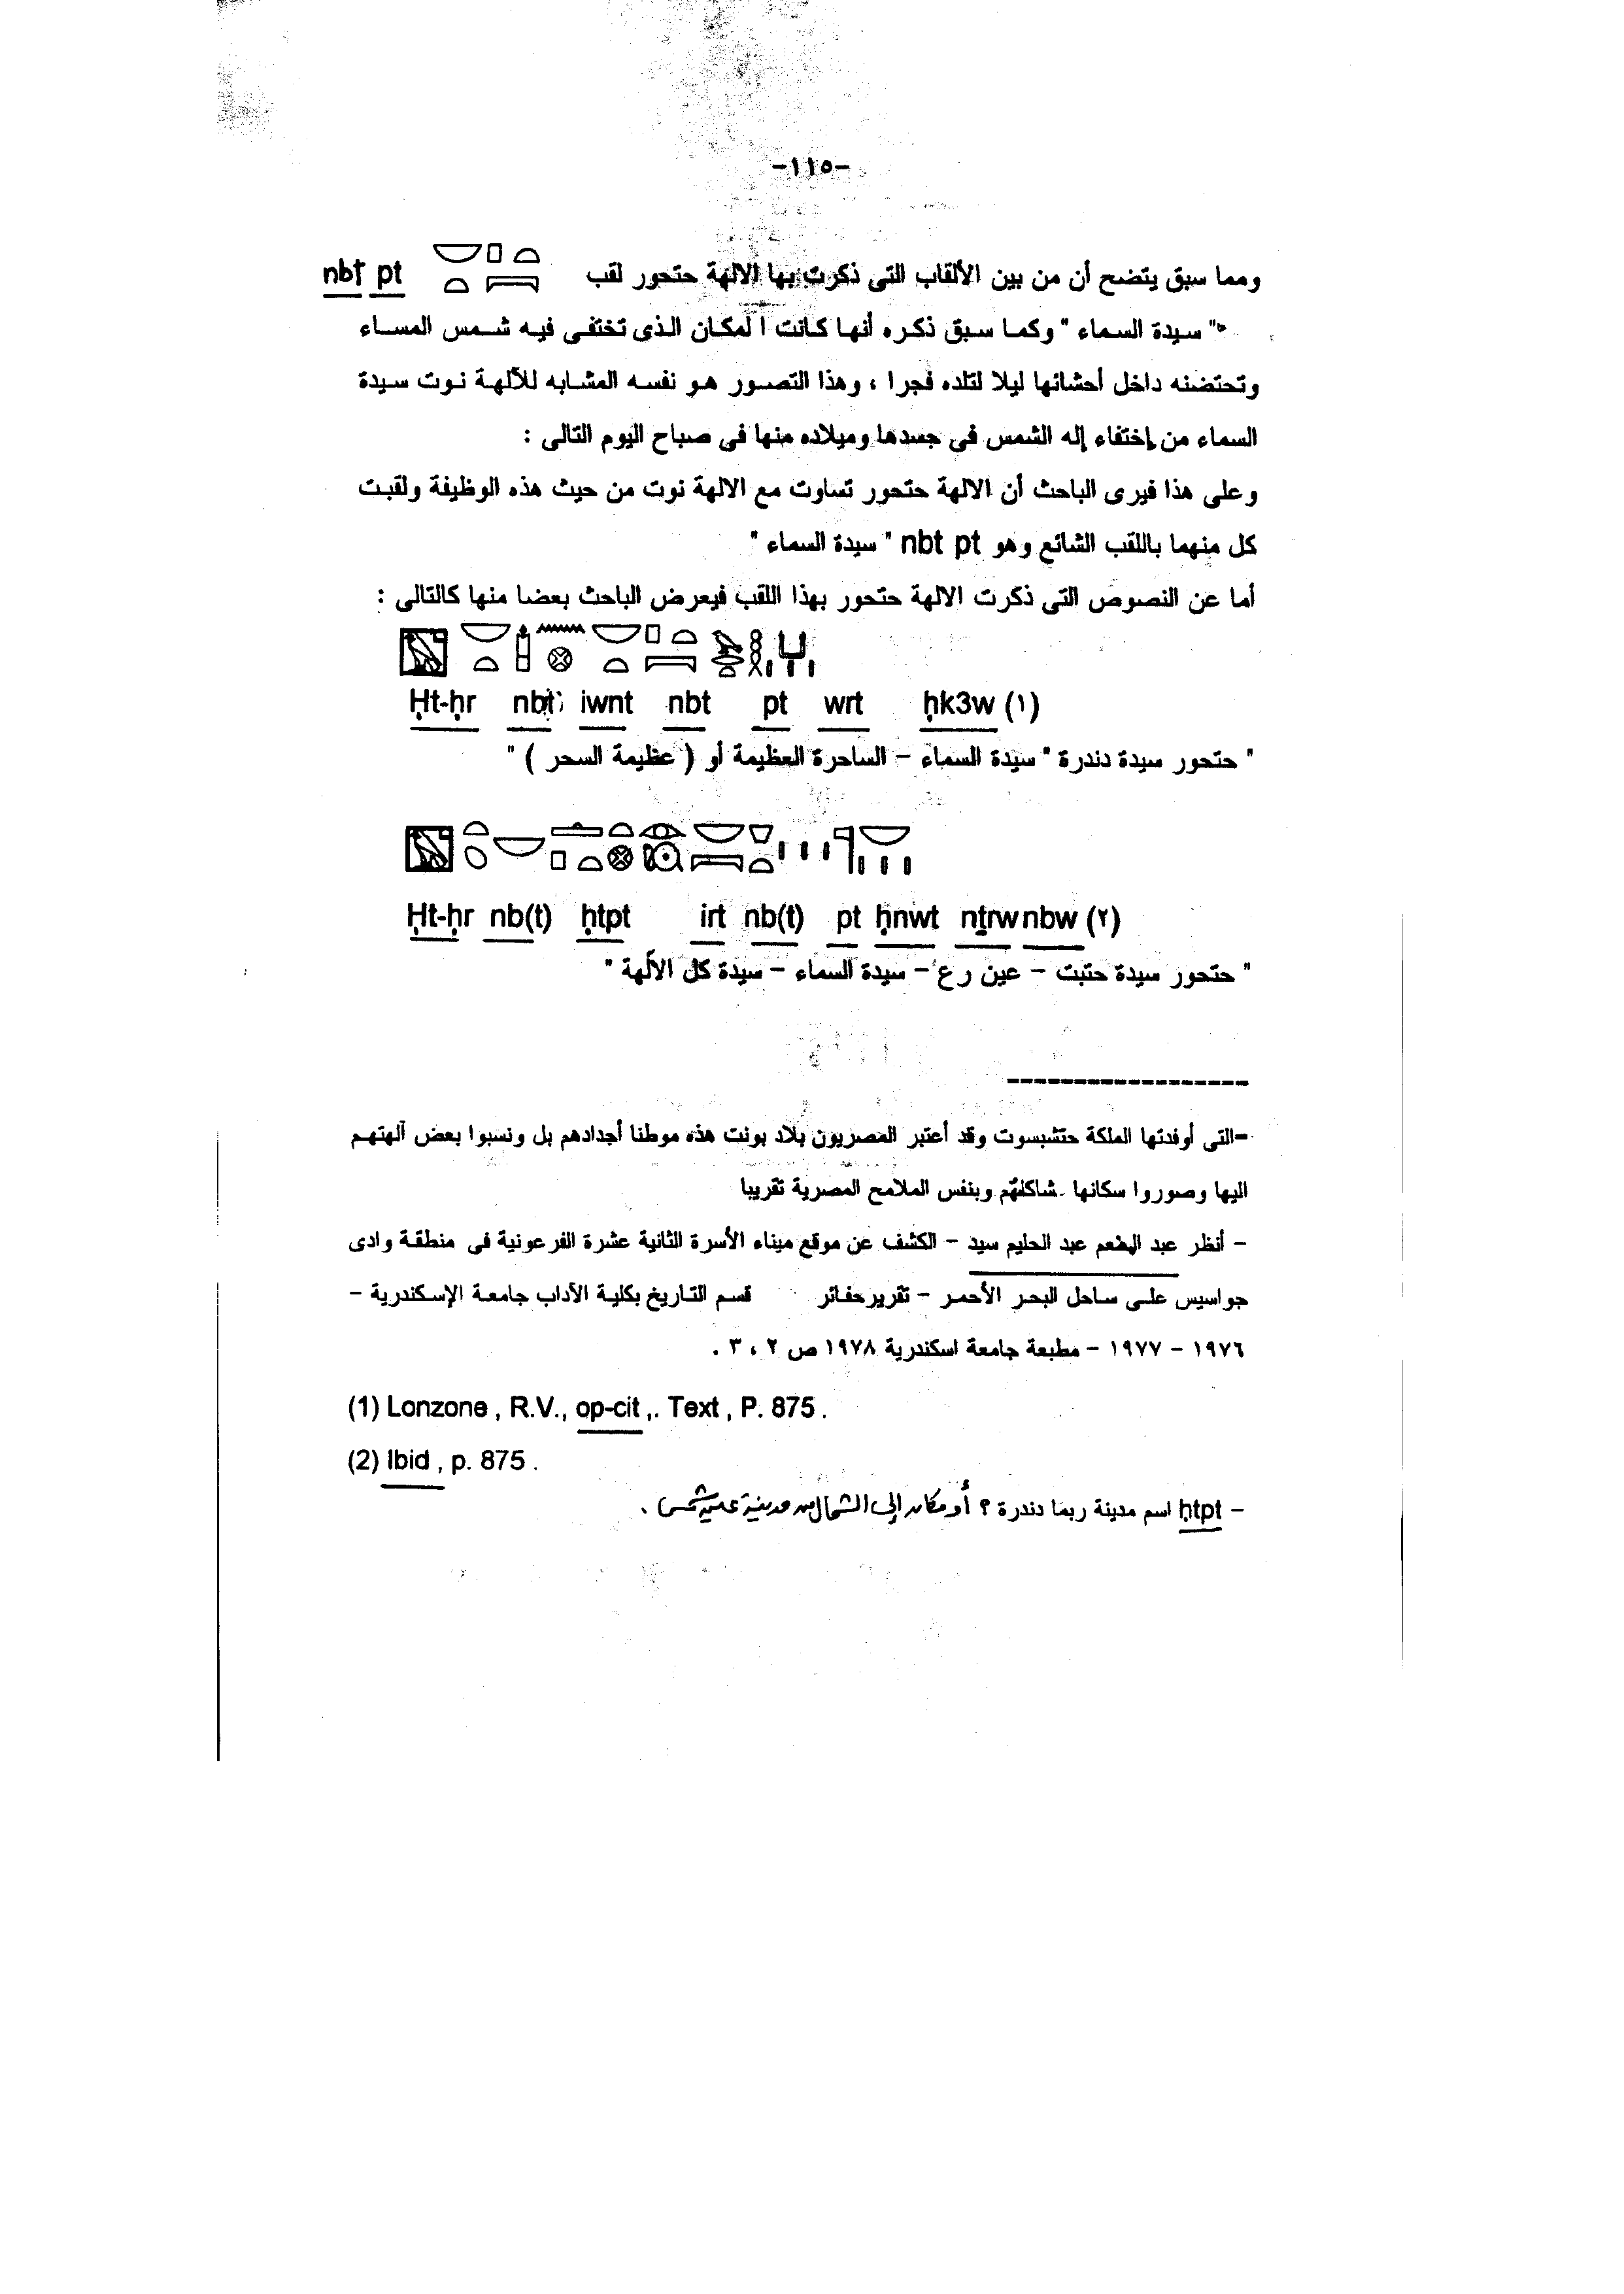 -١١٥-
ومما سبق يتضح أن من بين الألقاب التى ذكرت بها الالهة حتحور لقب nbt pt
" سيدة السماء " وكما سبق ذكره أنها كانت المكان الذى تختفى فيه شمس المساء
وتحتضنه داخل أحشائها ليلا لتلده فجرا ، وهذا التصور هو نفسه المشابه للآلهة نوت سيدة
السماء من إختفاء إله الشمس فى جسدها وميلاده منها فى صباح اليوم التالى :
وعلى هذا فيرى الباحث أن الالهة حتحور تساوت مع الالهة نوت من حيث هذه الوظيفة ولقبت
كل منهما باللقب الشائع وهو nbt pt " سيدة السماء "
أما عن النصوص التى ذكرت الالهة حتحور بهذا اللقب فيعرض الباحث بعضا منها كالتالى :
Ḥt-ḥr nbt iwnt nbt pt wrt ḥk3w (١)
" حتحور سيدة دندرة " سيدة السماء - الساحرة العظيمة أو ( عظيمة السحر ) "
Ḥt-ḥr nb(t) ḥtpt irt nb(t) pt ḥnwt nṯrw nbw (٢)
" حتحور سيدة حتبت - عين رع - سيدة السماء - سيدة كل الآلهة "
-التى أوفدتها الملكة حتشبسوت وقد أعتبر المصريون بلاد بونت هذه موطنا أجدادهم بل ونسبوا بعض آلهتهم
اليها وصوروا سكانها شاكلتهم وبنفس الملامح المصرية تقريبا
- أنظر عبد المنعم عبد الحليم سيد - الكشف عن موقع ميناء الأسرة الثانية عشرة الفرعونية فى منطقة وادى
جواسيس على ساحل البحر الأحمر - تقرير حفائر قسم التاريخ بكلية الآداب جامعة الإسكندرية -
١٩٧٦ - ١٩٧٧ - مطبعة جامعة اسكندرية ١٩٧٨ ص ٢ ، ٣ .
(1) Lonzone , R.V., op-cit ,. Text , P. 875 .
(2) Ibid , p. 875 .
- ḥtpt اسم مدينة ربما دندرة ؟ أو مكان إلى الشمال من مدينة عين شمس .